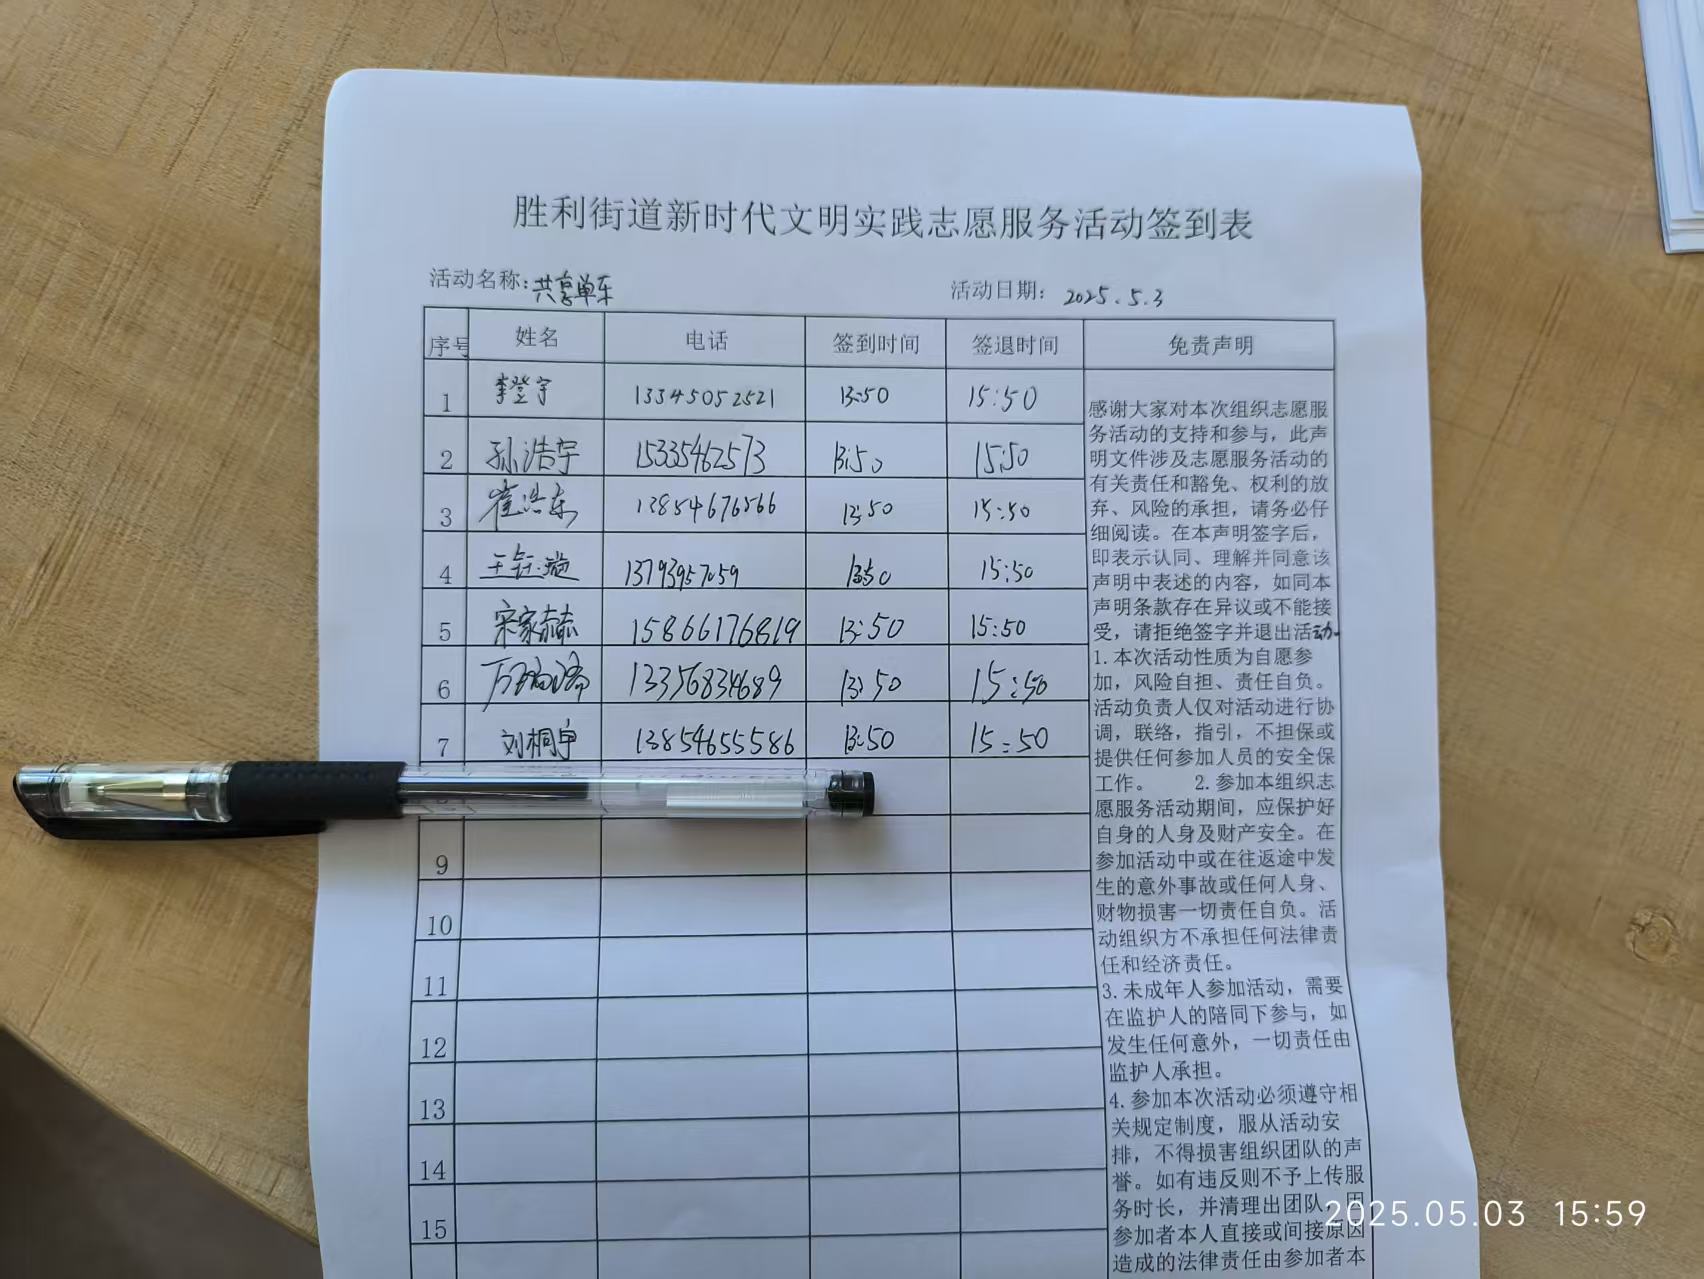 胜利街道新时代文明实践志愿服务活动签到表
活动名称：共享单车 活动日期： 2025.5.3
序号 姓名 电话 签到时间 签退时间 免责声明
1 李登宇 13345052521 13:50 15:50
2 孙浩宇 15335462573 13:50 15:50
3 崔浩东 13854676566 13:50 15:50
4 王钰璇 13793957059 13:50 15:50
5 宋家赫 15866176819 13:50 15:50
6 13356834689 13:50 15:50
7 刘桐卓 13854655586 13:50 15:50
9
10
11
12
13
14
15
感谢大家对本次组织志愿服
务活动的支持和参与，此声
明文件涉及志愿服务活动的
有关责任和豁免、权利的放
弃、风险的承担，请务必仔
细阅读。在本声明签字后，
即表示认同、理解并同意该
声明中表述的内容，如同本
声明条款存在异议或不能接
受，请拒绝签字并退出活动。
1.本次活动性质为自愿参
加，风险自担、责任自负。
活动负责人仅对活动进行协
调，联络，指引，不担保或
提供任何参加人员的安全保
工作。 2.参加本组织志
愿服务活动期间，应保护好
自身的人身及财产安全。在
参加活动中或在往返途中发
生的意外事故或任何人身、
财物损害一切责任自负。活
动组织方不承担任何法律责
任和经济责任。
3.未成年人参加活动，需要
在监护人的陪同下参与，如
发生任何意外，一切责任由
监护人承担。
4.参加本次活动必须遵守相
关规定制度，服从活动安
排，不得损害组织团队的声
誉。如有违反则不予上传服
务时长，并清理出团队。因
参加者本人直接或间接原因
造成的法律责任由参加者本
2025.05.03 15:59